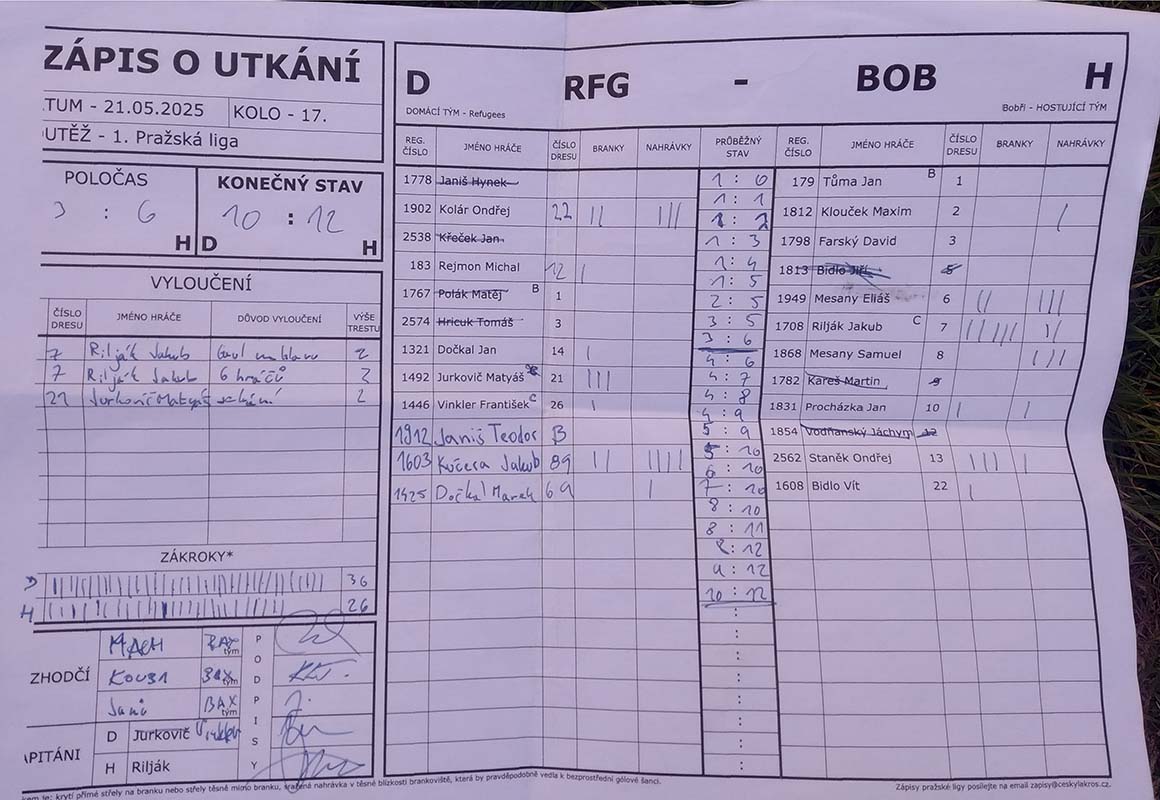 ZÁPIS O UTKÁNÍ
TUM - 21.05.2025 KOLO - 17.
OUTĚŽ - 1. Pražská liga
POLOČAS KONEČNÝ STAV
3 : 6 10 : 12
H D H
VYLOUČENÍ
ČÍSLO DRESU JMÉNO HRÁČE DŮVOD VYLOUČENÍ VÝŠE TRESTU
7 Rilják Jakub 2
7 Rilják Jakub 6 hráčů 2
21 Jurkovič Matyáš sekání 2
ZÁKROKY*
D 36
H 26
ZHODČÍ MACH BAX tým
KOUBA BAX tým
Janů BAX tým
PODPISY
APITÁNI D Jurkovič Vinkler
H Rilják
D RFG - BOB H
DOMÁCÍ TÝM - Refugees Bobři - HOSTUJÍCÍ TÝM
REG. ČÍSLO JMÉNO HRÁČE ČÍSLO DRESU BRANKY NAHRÁVKY PRŮBĚŽNÝ STAV REG. ČÍSLO JMÉNO HRÁČE ČÍSLO DRESU BRANKY NAHRÁVKY
1778 Janiš Hynek 1 : 0 179 Tůma Jan B 1
1 : 1
1902 Kolár Ondřej 22 || ||| 1 : 2 1812 Klouček Maxim 2 |
2538 Křeček Jan 1 : 3 1798 Farský David 3
183 Rejmon Michal 12 | 1 : 4 1813 Bidlo Jiří 5
1 : 5
1767 Polák Matěj B 1 2 : 5 1949 Mesany Eliáš 6 || |||
2574 Hricuk Tomáš 3 3 : 5 1708 Rilják Jakub C 7 ||||| ||
3 : 6
1321 Dočkal Jan 14 | 4 : 6 1868 Mesany Samuel 8 |||
1492 Jurkovič Matyáš 21 ||| 4 : 7 1782 Kareš Martin 9
4 : 8
1446 Vinkler František C 26 | 4 : 9 1831 Procházka Jan 10 | |
1912 Janiš Teodor B 5 : 9 1854 Vodňanský Jáchym 12
1603 Kučera Jakub 89 || |||| 5 : 10 2562 Staněk Ondřej 13 ||| |
6 : 10
1425 Dočkal Marek 69 | 7 : 10 1608 Bidlo Vít 22 |
8 : 10
8 : 11
8 : 12
9 : 12
10 : 12
kem je: krytí přímé střely na branku nebo střely těsně mimo branku, sražená nahrávka v těsné blízkosti brankoviště, která by pravděpodobně vedla k bezprostřední gólové šanci.
Zápisy pražské ligy posílejte na email zapisy@ceskylakros.cz.